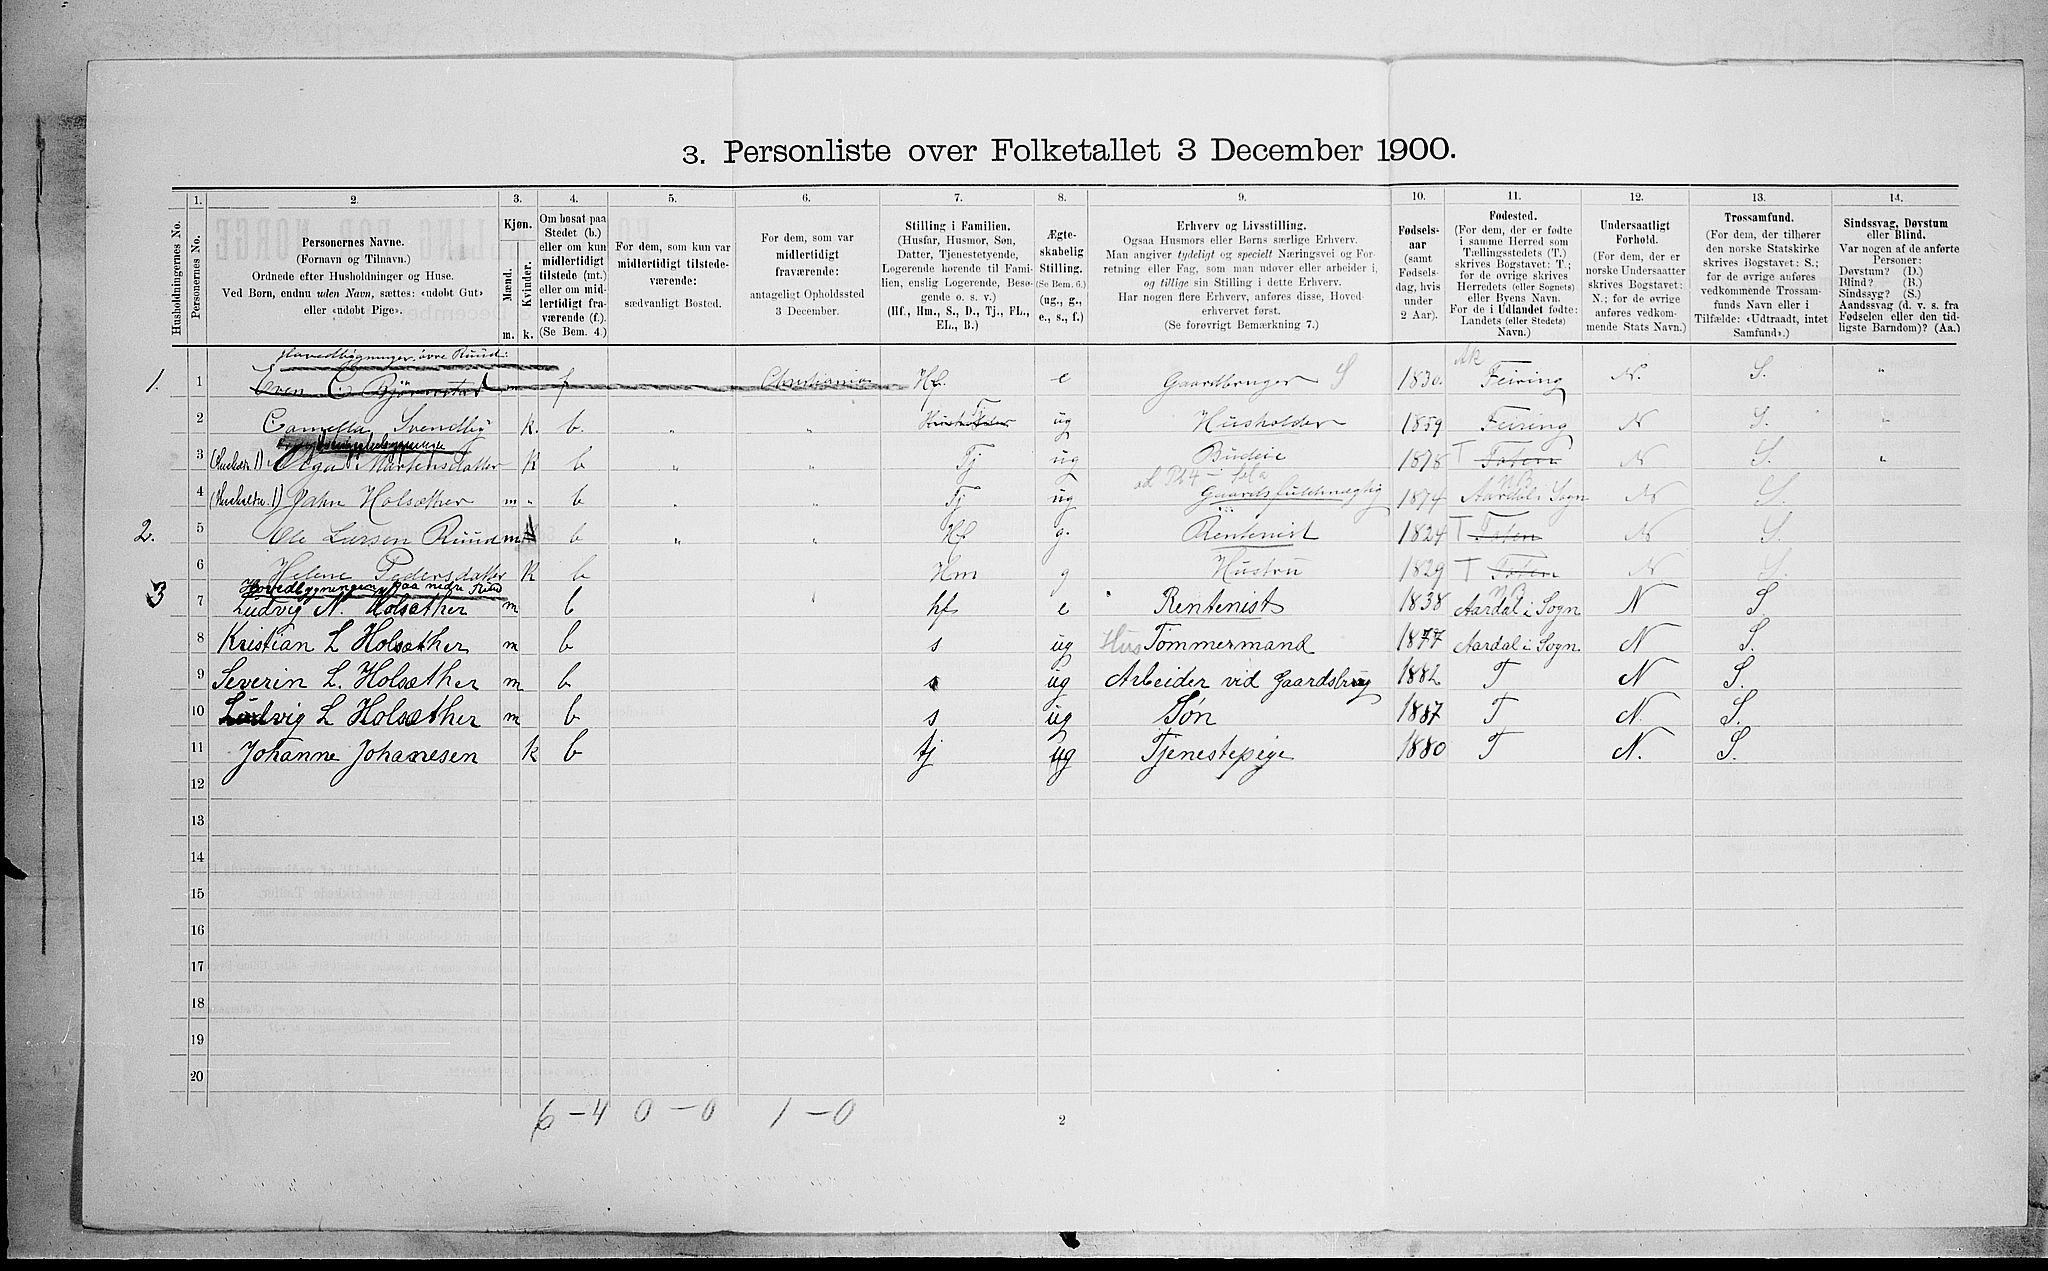 3. Personliste over Folketallet 3 December 1900.
Husholdningernes No.
1.
Personernes No.
2.
Personernes Navne.
(Fornavn og Tilnavn.)
Ordnede efter Husholdninger og Huse.
Ved Børn, endnu uden Navn, sættes: «udøbt Gut»
eller «udøbt Pige».
3.
Kjøn.
Mænd.
Kvinder.
m. k.
4.
Om bosat paa
Stedet (b.)
eller om kun
midlertidigt
tilstede (mt.)
eller om mid-
lertidigt fra-
værende (f.).
(Se Bem. 4.)
5.
For dem, som kun var
midlertidigt tilstede-
værende:
sædvanligt Bosted.
6.
For dem, som var
midlertidigt
fraværende:
antageligt Opholdssted
3 December.
7.
Stilling i Familien.
(Husfar, Husmor, Søn,
Datter, Tjenestetyende,
Logerende hørende til Fami-
lien, enslig Logerende, Besø-
gende o. s. v.)
(Hf., Hm., S., D., Tj., FL.,
EL., B.)
8.
Ægte-
skabelig
Stilling.
(Se Bem. 6.)
(ug., g.,
e., s., f.)
9.
Erhverv og Livsstilling.
Ogsaa Husmors eller Børns særlige Erhverv.
Man angiver tydeligt og specielt Næringsvei og For-
retning eller Fag, som man udøver eller arbeider i,
og tillige sin Stilling i dette Erhverv.
Har nogen flere Erhverv, anføres disse, Hoved-
erhvervet først.
(Se forøvrigt Bemærkning 7.)
10.
Fødsels-
aar
(samt
Fødsels-
dag, hvis
under
2 Aar).
11.
Fødested.
(For dem, der er fødte
i samme Herred som
Tællingsstedets (T.)
skrives Bogstavet: T.;
for de øvrige skrives
Herredets (eller Sognets)
eller Byens Navn.
For de i Udlandet fødte:
Landets (eller Stedets)
Navn.)
12.
Undersaatligt
Forhold.
(For dem, der er
norske Undersaatter
skrives Bogstavet:
N.; for de øvrige
anføres vedkom-
mende Stats Navn.)
13.
Trossamfund.
(For dem, der tilhører
den norske Statskirke
skrives Bogstavet: S.;
for de øvrige anføres
vedkommende Trossam-
funds Navn eller i
Tilfælde: «Udtraadt, intet
Samfund».)
14.
Sindssvag, Døvstum
eller Blind.
Var nogen af de anførte
Personer:
Døvstum? (D.)
Blind? (B.)
Sindssyg? (S.)
Aandssvag (d. v. s. fra
Fødselen eller den tid-
ligste Barndom)? (Aa.)
Hovedbygninger øvre Ruud:
1. 1 Even C Bjørnstad m f Christiania Hf. e Gaardbruger S 1830. Ak Feiring N. S. "
2 Camella Svendby k. b. " " Tj ug Husholder 1859 Feiring N S. "
3 Olga Martensdatter k b " " Tj ug Budeie 1878 T Toten N S. "
4 Jahn Holsæther m " b " " Tj ug Gaardsfuldmægtig 1874 Aardal i Sogn N S.
2. 5 Ole Larsen Ruud m b " " Hf g. Rentenist 1824 T Toten N S.
6 Helene Pedersdatter k b Hm g Hustru 1829 T Toten N S.
Hovedbygningen paa nedre Ruud
3 7 Ludvig N. Holsæther m b hf e Rentenist 1838 Aardal i Sogn N S.
8 Kristian L Holsæther m b s ug Hus Tømmermand 1877 Aardal i Sogn N S.
9 Severin L. Holsæther m b s ug Arbeider vid Gaardsbrug 1882 T N S.
10 Ludvig L Holsæther m b s ug Søn 1887 T N. S.
11 Johanne Johanesen k b tj ug Tjenestepige 1880 T N. S.
12
13
14
15
16
17
18
19
20
6 - 4 0 - 0 1 - 0
2